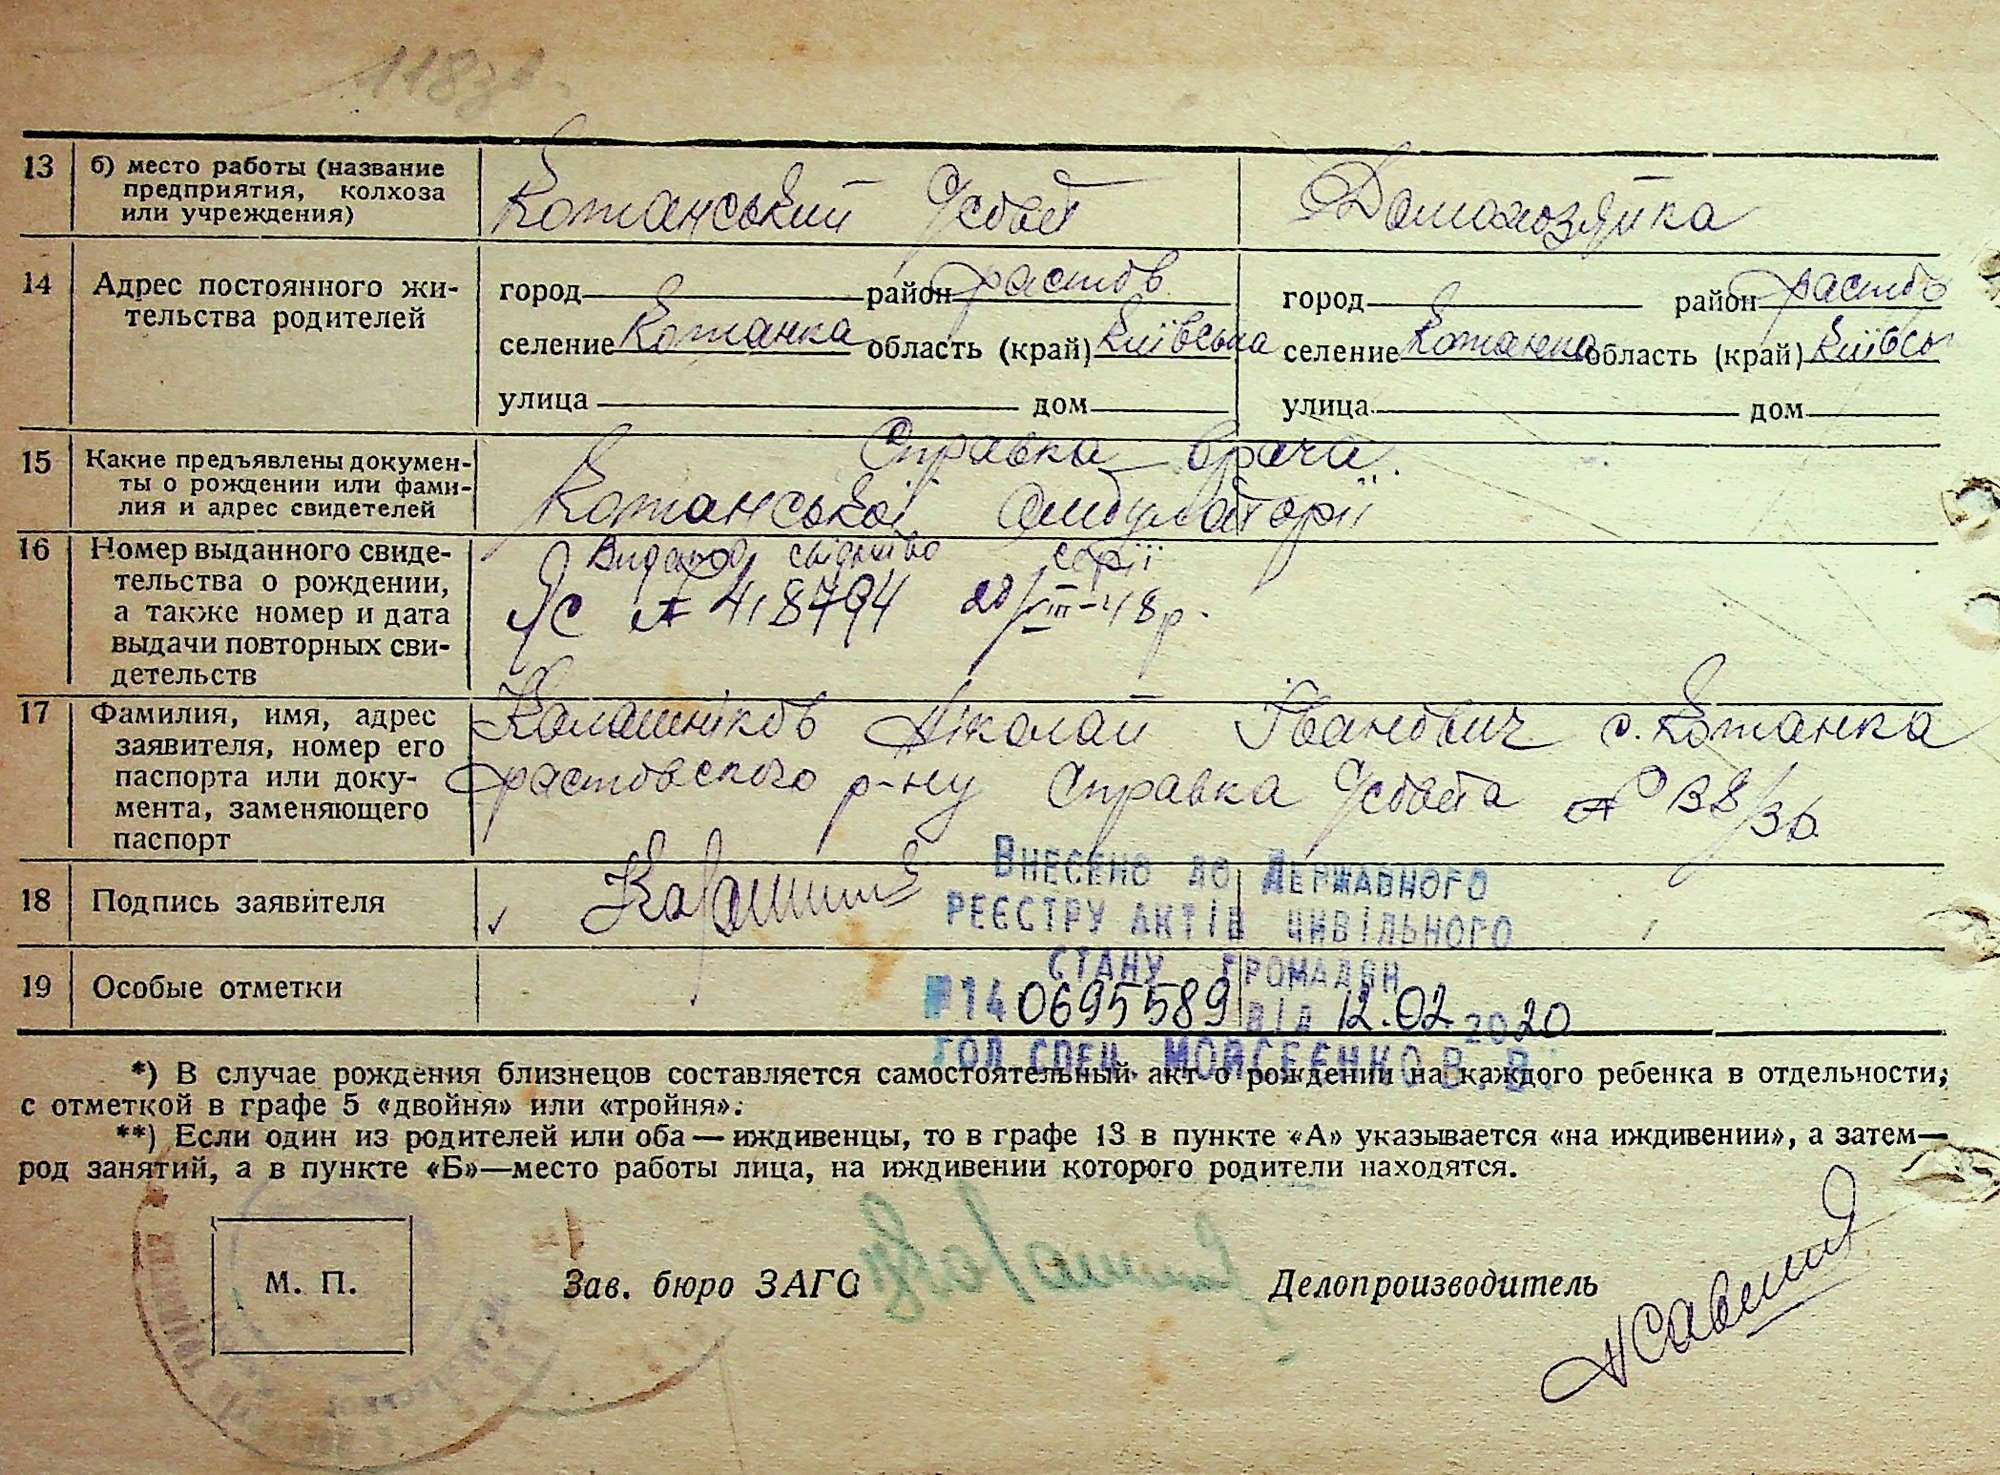 118зв
13 б) место работы (название
предприятия, колхоза
или учреждения)
Кожанський Усбат Домохозяйка
14 Адрес постоянного жи-
тельства родителей
город район Фастов город район Фастов
селение Кожанка область (край) Київська селение Кожанка область (край) Київсь
улица дом улица дом
15 Какие предъявлены докумен-
ты о рождении или фами-
лия и адрес свидетелей
Справка врача.
Кожанської Амбулаторії
16 Номер выданного свиде-
тельства о рождении,
а также номер и дата
выдачи повторных сви-
детельств
свідоцтво серії
ЯС № 418794 20/VIII-48р.
17 Фамилия, имя, адрес
заявителя, номер его
паспорта или доку-
мента, заменяющего
паспорт
Калашніков Ніколай Іванович с. Кожанка
Фастовского р-ну Справка Усбата № 138/36
18 Подпись заявителя
19 Особые отметки
Внесено до Державного
реєстру актів цивільного
стану громадян
№14 0695589 від 12.02.2020
гол. спец. Мойсеєнко В. В.
*) В случае рождения близнецов составляется самостоятельный акт о рождении на каждого ребенка в отдельности,
с отметкой в графе 5 «двойня» или «тройня».
**) Если один из родителей или оба — иждивенцы, то в графе 13 в пункте «А» указывается «на иждивении», а затем—
род занятий, а в пункте «Б»—место работы лица, на иждивении которого родители находятся.
М. П.
Зав. бюро ЗАГС Делопроизводитель